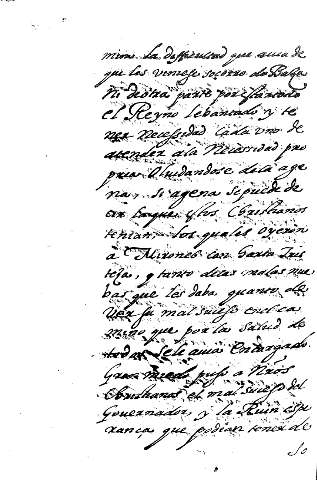 mino. La difficultad que auia de
que les viniese socorro de Baça
ni de otra parte por estar todo
el Reyno lebantado y te
ner necessidad cada vno de
atender a la necessidad pro
pria oluidandose de la age
na, si agena se puede de
cir la que los Christianos
tenian, los quales oyeron
a Mirones con harta tris
teza, y tanto de las malas nue
bas que les daba, quanto de
ver su mal suceso en el ca
mino que por la salud de
todos se le auia encargado.
Gran miedo puso a nros
Christianos el mal suceso del
Gouernador, y la Ruin espe
rança que podian tener de
so